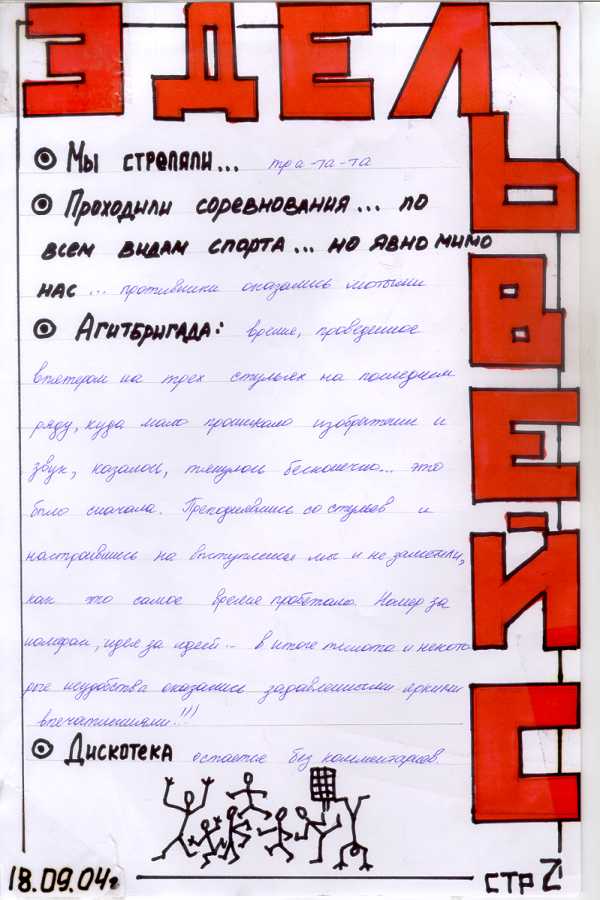 ЭДЕЛЬВЕЙС
Мы стреляли... тра-та-та
Проходили соревнования... по
всем видам спорта... но явно мимо
нас ... противники оказались
Агитбригада: время, проведенное
впятером на трех стульях на последнем
ряду, куда мало проникало и
звук, казалось, тянулось бесконечно... это
было сначала. Преподнявшись со стульев и
настроившись на выступление мы и не заметили,
как это самое время пробежало. Номер за
номером, идея за идеей... в итоге теснота и некото
рые неудобства оказались задавленными яркими
впечатлениями!!!
Дискотека остается без комментариев.
18.09.04г
стр 2